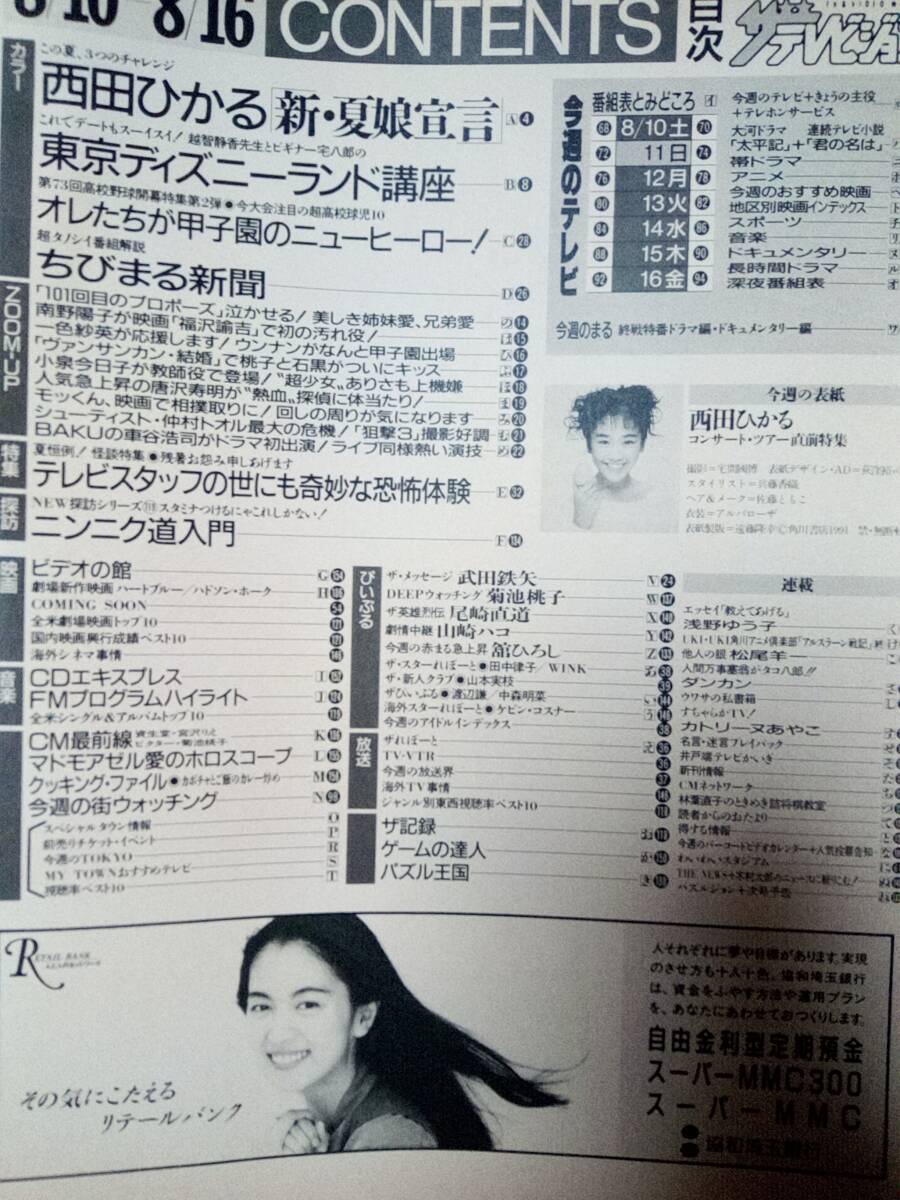 8/10 8/16 CONTENTS 目次 ザテレビジョン
カラー
この夏、3つのチャレンジ
西田ひかる「新・夏娘宣言」 A 4
これでデートもスーイスイ! 越智静香先生とビギナー宅八郎の
東京ディズニーランド講座 B 8
第73回高校野球開幕特集第2弾●今大会注目の超高校球児10
オレたちが甲子園のニューヒーロー! C 28
超タノシイ番組解説
ちびまる新聞 D 26
ZOOM-UP
「101回目のプロポーズ」泣かせる!美しき姉妹愛、兄弟愛 の 14
南野陽子が映画「福沢諭吉」で初の汚れ役! は 15
一色紗英が応援します!ウンナンがなんと甲子園出場 ひ 16
「ヴァンサンカン・結婚」で桃子と石黒がついにキッス ふ 17
小泉今日子が教師役で登場!“超少女”ありさも上機嫌 ほ 18
人気急上昇の唐沢寿明が“熱血”探偵に体当たり! ま 19
モッくん、映画で相撲取りに!回しの周りが気になります み 20
シューティスト・仲村トオル最大の危機!「狙撃3」撮影好調 む 21
BAKUの車谷浩司がドラマ初出演!ライブ同様熱い演技 め 22
特集
夏恒例!怪談特集●残暑お怨み申しあげます
テレビスタッフの世にも奇妙な恐怖体験 E 32
探訪
NEW探訪シリーズ スタミナつけるにゃこれしかない!
ニンニク道入門 F 134
映画
ビデオの館 G
劇場新作映画 ハートブルー/ハドソン・ホーク H
COMING SOON 54
全米劇場映画トップ10
国内映画興行成績ベスト10
海外シネマ事情
音楽
CDエキスプレス I
FMプログラムハイライト J
全米シングル&アルバムトップ10
CM最前線 資生堂・宮沢りえ ビクター・菊池桃子 K
マドモアゼル愛のホロスコープ L
クッキング・ファイル●カボチャとご飯のカレー炒め M
今週の街ウォッチング N
スペシャルタウン情報 O
前売りチケット・イベント P
今週のTOKYO R
MY TOWNおすすめテレビ S
視聴率ベスト10 T
ぴいぷる
ザ・メッセージ 武田鉄矢 V 24
DEEPウォッチング 菊池桃子 W 137
ザ英雄烈伝 尾崎直道 X
劇情中継 山崎ハコ Y
今週の赤まる急上昇 舘ひろし Z
ザ・スターれぽーと●田中律子/WINK 38
ザ・新人クラブ●山本実枝 39
ザひいぷる●渡辺謙/中森明菜
海外スターれぽーと●ケビン・コスナー
今週のアイドルインデックス 38
放送
ザれぽーと え 36
TV-VTR 36
今週の放送界 37
海外TV事情
ジャンル別東西視聴率ベスト10
ザ記録
ゲームの達人
パズル王国
今週のテレビ
番組表とみどころ イ
68 8/10土 70
72 11日 74
76 12月 78
80 13火 82
84 14水 86
88 15木 90
92 16金 94
今週のテレビ+きょうの主役
+テレホンサービス
大河ドラマ 連続テレビ小説
「太平記」+「君の名は」
帯ドラマ
アニメ
今週のおすすめ映画
地区別映画インデックス
スポーツ
音楽
ドキュメンタリー
長時間ドラマ
深夜番組表
今週のまる 終戦特番ドラマ編・ドキュメンタリー編
今週の表紙
西田ひかる
コンサート・ツアー直前特集
スタイリスト=兵藤香織
ヘア&メーク=佐藤ともこ
衣装=アルバローザ
Ⓒ角川書店1991
連載
エッセイ「教えてあげる」
浅野ゆう子
UKI・UKI角川アニメ倶楽部「アルスラーン戦記」
他人の銀 松尾羊一
人間万事塞翁がタコ八郎!!
ダンカン
ウワサの私書箱
すちゃらかTV!
カトリーヌあやこ
名言・迷言プレイバック
井戸端テレビかいぎ
新刊情報
CMネットワーク
林葉直子のときめき詰将棋教室
読者からのおたより
得する情報
今週のバーコードビデオカレンダー+人気投票告知
わいわいスタジアム
THE NEWS+木村太郎のニュースに斬りこむ!
パズルジョン+次号予告
RETAIL BANK
その気にこたえる
リテールバンク
人それぞれに夢や目標があります。実現
のさせ方も十人十色。協和埼玉銀行
は、資金をふやす方法や運用プラン
を、あなたにあわせておつくりします。
自由金利型定期預金
スーパーMMC300
スーパーMMC
協和埼玉銀行